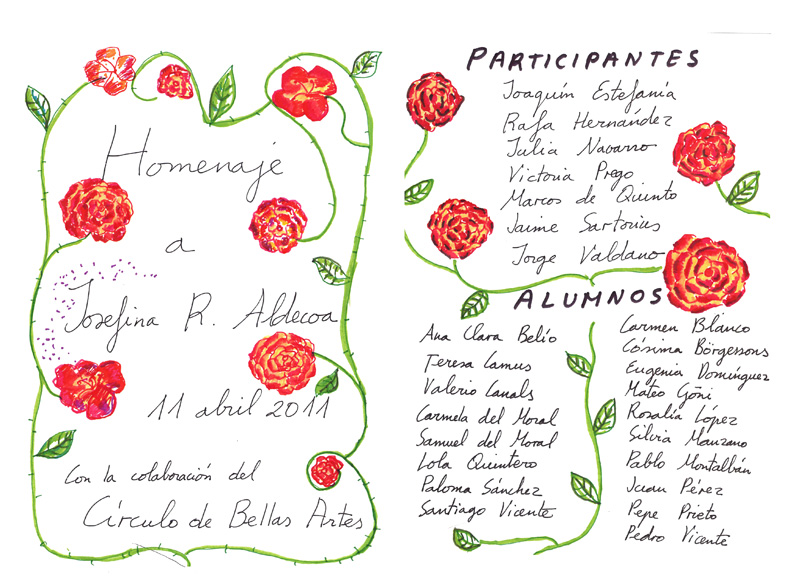 Homenaje
a
Josefina R. Aldecoa
11 abril 2011
Con la colaboración del
Círculo de Bellas Artes
PARTICIPANTES
Joaquín Estefanía
Rafa Hernández
Julia Navarro
Victoria Prego
Marcos de Quinto
Jaime Sartorius
Jorge Valdano
ALUMNOS
Ana Clara Belío
Teresa Camus
Valerio Canals
Carmela del Moral
Samuel del Moral
Lola Quintero
Paloma Sánchez
Santiago Vicente
Carmen Blanco
Cósima Börgessons
Eugenia Domínguez
Mateo Goñi
Rosalía López
Silvia Manzano
Pablo Montalbán
Juan Pérez
Pepe Prieto
Pedro Vicente